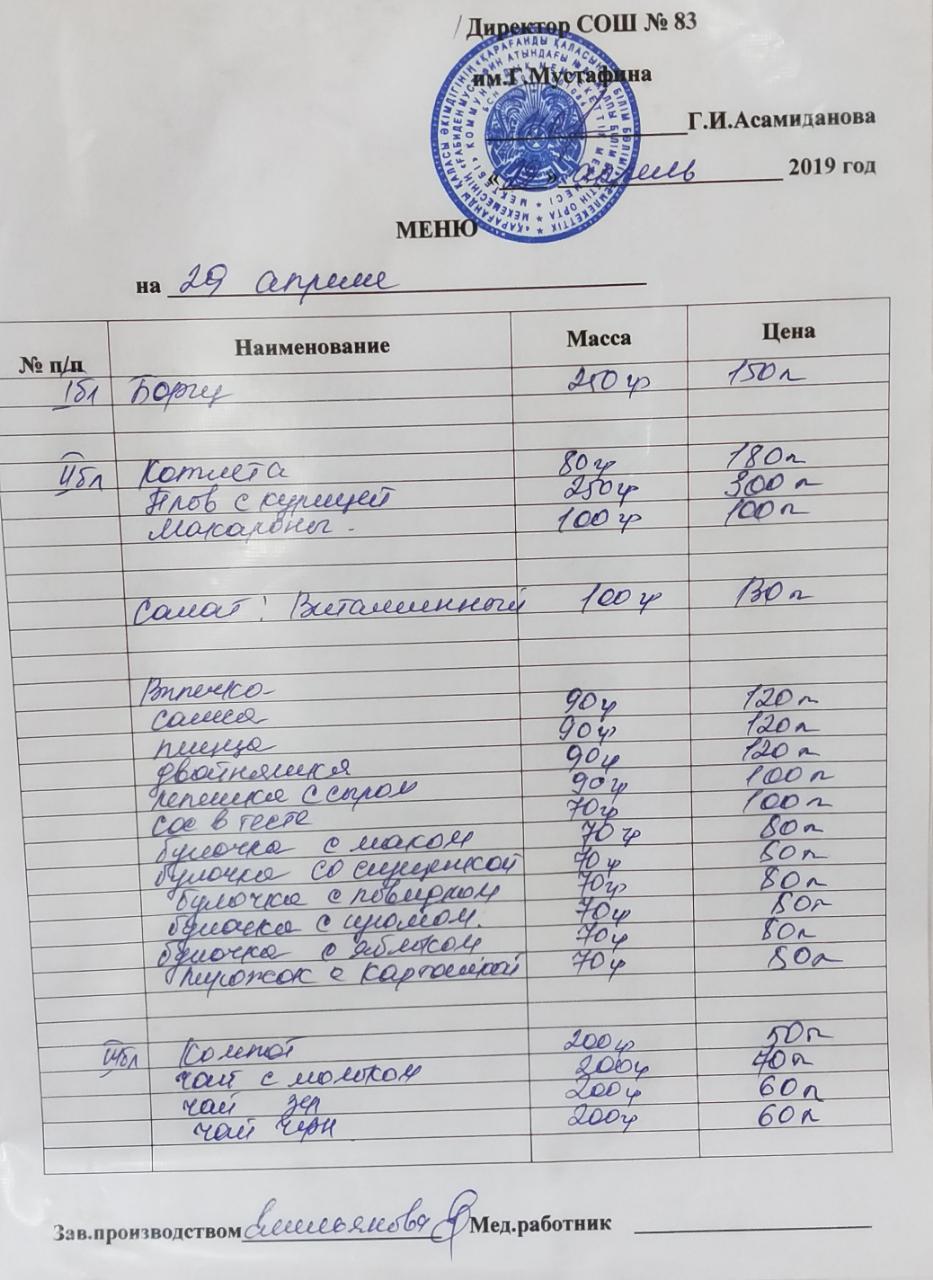 Директор СОШ № 83
им.Г.Мустафина
Г.И.Асамиданова
« » апрель 2019 год
МЕНЮ
на 29 апреля
№ п/п Наименование Масса Цена
I бл Борщ 250 гр 150 т
II бл Котлета 80 гр 180 т
Плов с курицей 250 гр 300 т
Макароны 100 гр 100 т
Салат: Витаминный 100 гр 130 т
Выпечка
самса 90 гр 120 т
пицца 90 гр 120 т
двойняшка 90 гр 120 т
лепешка с сыром 90 гр 100 т
сос в тесте 70 гр 100 т
булочка с маком 70 гр 80 т
булочка со сгущенкой 70 гр 80 т
булочка с повидлом 70 гр 80 т
булочка с изюмом. 70 гр 80 т
булочка с яблоком 70 гр 80 т
пирожок с картошкой 70 гр 80 т
III бл Компот 200 гр 50 т
чай с молоком 200 гр 70 т
чай зел 200 гр 60 т
чай черн 200 гр 60 т
Зав.производством Емельянова Мед.работник